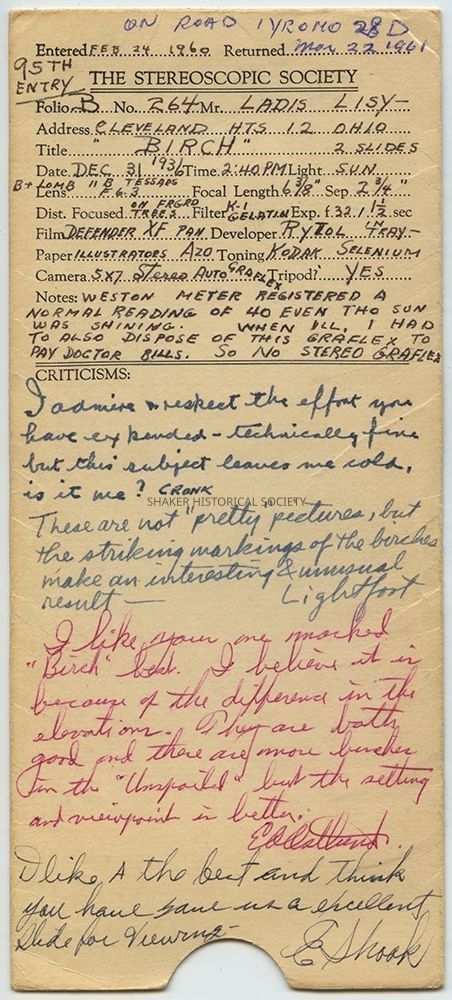 ON ROAD TYROMO 28 D
Entered FEB 24 1960 Returned Mar 22 1961
95TH
ENTRY
THE STEREOSCOPIC SOCIETY
Folio B No. 264 Mr. LADIS LISY-
Address CLEVELAND HTS 12 OHIO
Title "BIRCH" 2 SLIDES
Date DEC 31 1936 Time 2:40 PM Light SUN
B+LOMB "B TESSARS
Lens F 6.3 Focal Length 6 3/8" Sep 2 3/4"
Dist. Focused ON FRGRD TREES Filter K-1 GELATIN Exp. f.32 1 1/2 sec
Film DEFENDER XF PAN Developer RYTOL
Paper ILLUSTRATORS AZO Toning KODAK SELENIUM
Camera 5X7 STEREO AUTO GRAFLEX Tripod? YES
Notes: WESTON METER REGISTERED A
NORMAL READING OF 40 EVEN THO SUN
WAS SHINING. WHEN ILL, I HAD
TO ALSO DISPOSE OF THIS GRAFLEX TO
PAY DOCTOR BILLS. SO NO STEREO GRAFLEX
CRITICISMS:
I admire & respect the effort you
have expended - technically fine
but this subject leaves me cold,
is it me? CRONK
SHAKER HISTORICAL SOCIETY
These are not "pretty pictures, but
the striking markings of the birches
make an interesting & unusual
result —
Lightfoot
I like your one marked
"Birch" best. I believe it is
because of the difference in the
elevations. They are both
good and there are more birches
in the "Unspoiled" but the setting
and viewpoint is better.
I like A the best and think
you have gave us a excellent
slide for viewing-
E Shook